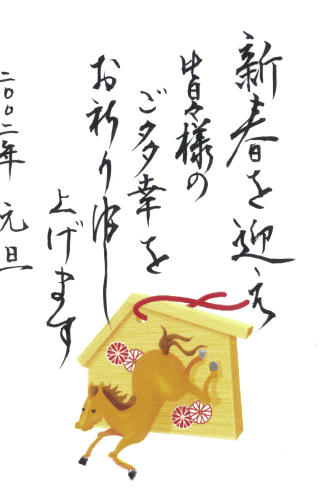 新春を迎え
皆々様の
ご多幸を
お祈り申し
上げます
二〇〇二年 元旦